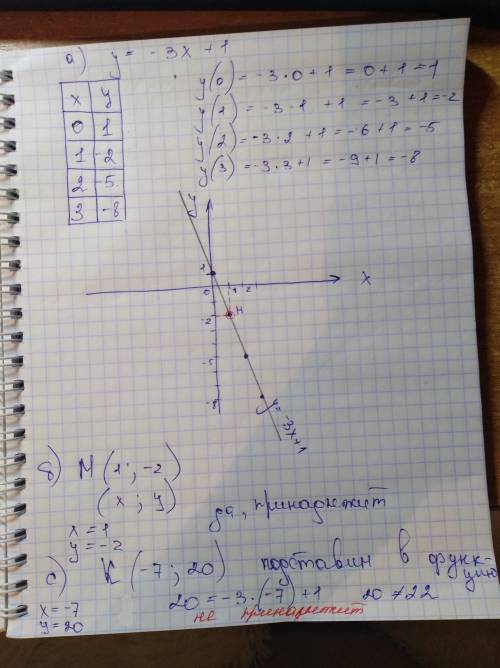 а) y = -3x + 1
x y
0 1
1 -2
2 -5
3 -8
y(0) = -3·0+1 = 0+1 = 1
y(1) = -3·1 +1 = -3+1 = -2
y(2) = -3·2 +1 = -6+1 = -5
y(3) = -3·3+1 = -9+1 = -8
y
1
0 1 2 x
-2 М
-5
-8
y=-3x+1
б) М (1; -2)
(x ; y)
x = 1
y = -2
да, принадлежит
с) К (-7; 20) подставим в функ-
цию
x = -7
y = 20
20 = -3·(-7)+1 20 ≠ 22
не принадлежит